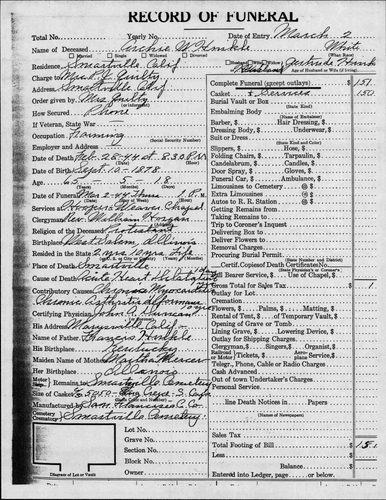 RECORD OF FUNERAL
Total No. Yearly No. Date of Entry March 2
Name of Deceased Archie W Hinkle White
(What Race)
Married Single Widowed Divorced
Residence Smartville Calif
Husband Gertrude Hinkle
Age of Husband or Wife (if living)
Charge to Mrs Guilty
Address Smartville Calif
Order given by Mrs Guilty
How Secured Phone
If Veteran, State War
Occupation Farming
Employer and Address
Date of Death Feb. 28-44 at 8:30 P.M.
Date of Birth Sept. 10-1878
Age 65 5 18
Date of Funeral Mar 2-44 1 P.M.
Services at Hoopers Weaver Chapel
Clergyman Rev. William Horgan
Religion of the Deceased Protestant
Birthplace West Salem, Illinois
Resided in the State
Place of Death Smartville
Cause of Death
Contributory Causes Chronic Myocarditis
Chronic Arthritis
Certifying Physician John
His Address Marysville Calif
Name of Father Francis Hinkle
His Birthplace Kentucky
Maiden Name of Mother Martha Mercer
Her Birthplace Illinois
Remains to Smartville Cemetery
Size of
Manufactured by San Francisco C. Co
Cemetery
Crematory Smartville Cemetery
Lot No.
Grave No.
Section No.
Block No.
Owner
Diagram of Lot or Vault
Complete Funeral (except outlays) $ 151
Casket & Services 150
Burial Vault or Box
(State Kind)
Embalming Body
(Name of Embalmer)
Barber, $ Hair Dressing, $
Dressing Body, $ Underwear, $
Suit or Dress
(State Kind and Color)
Slippers, $ Hose, $
Folding Chairs, $ Tarpaulin, $
Candelabrum, $ Candles, $
Door Spray, $ Gloves, $
Funeral Car, $ Ambulance, $
Limousines to Cemetery @ $
Extra Limousines @ $
Autos to R. R. Station @ $
Getting Remains from
Taking Remains to
Trip to Coroner's Inquest
Delivering Box to
Deliver Flowers to
Removal Charges
Procuring Burial Permit
(State Number and District)
Certif. Copies of Death Certificates No.
(State Physician's or Coroner's)
Pall Bearer Service, $ Use of Chapel, $
Gross Total for Sales Tax $ 1
Outlay for Lot
Cremation
Flowers, $ Palms, $ Matting, $
Rental of Tent, $ of Temporary Vault, $
Opening of Grave or Tomb
Lining Grave, $ Lowering Device, $
Outlay for Shipping Charges
Clergyman, $ Singers, $ Organist, $
Railroad or Motor Tickets, $ Aeroplane Service, $
Telegr., Phone, Cable or Radio Charges
Cash Advanced
Out of town Undertaker's Charges
Personal Service
line Death Notices in Papers
Sales Tax
Total Footing of Bill $ 151
Less
Balance
Entered into Ledger, page or below.